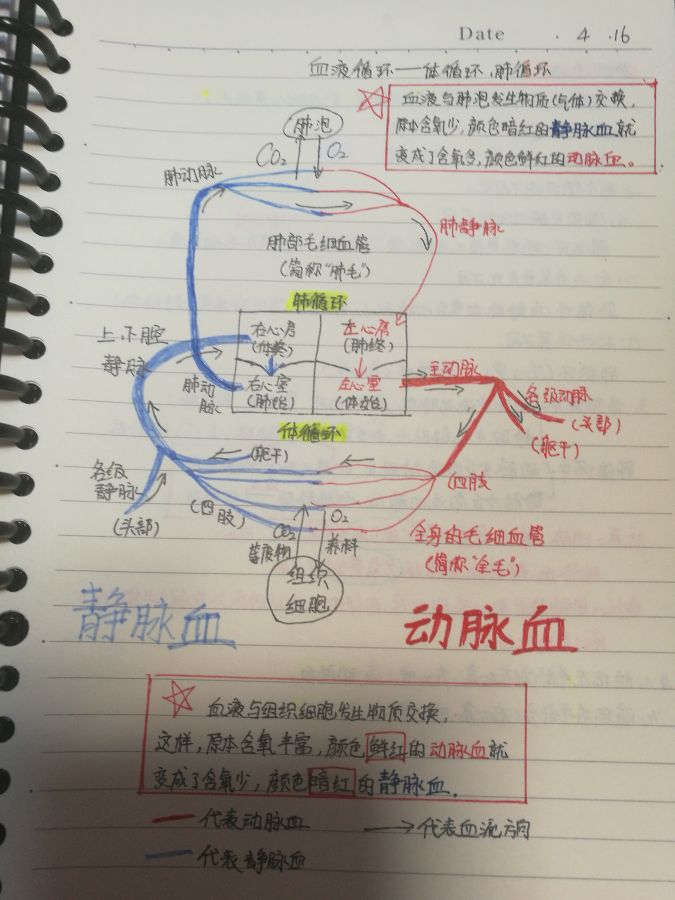 Date 4.16
血液循环——体循环、肺循环
血液与肺泡发生物质(气体)交换,
原本含氧少,颜色暗红的静脉血就
变成了含氧多,颜色鲜红的动脉血。
肺泡
CO₂
O₂
肺动脉
肺静脉
肺部毛细血管
(简称"肺毛")
肺循环
上、下腔
静脉
右心房
(体终)
左心房
(肺终)
肺动
脉
右心室
(肺始)
左心室
(体始)
主动脉
各级动脉
(头部)
(躯干)
体循环
(躯干)
各级
静脉
(头部)
(四肢)
(四肢
CO₂
等废物
O₂
养料
组织
细胞
全身的毛细血管
(简称"全毛")
静脉血
动脉血
血液与组织细胞发生物质交换,
这样,原本含氧丰富,颜色鲜红的动脉血就
变成了含氧少,颜色暗红的静脉血。
代表动脉血
代表血流方向
代表静脉血